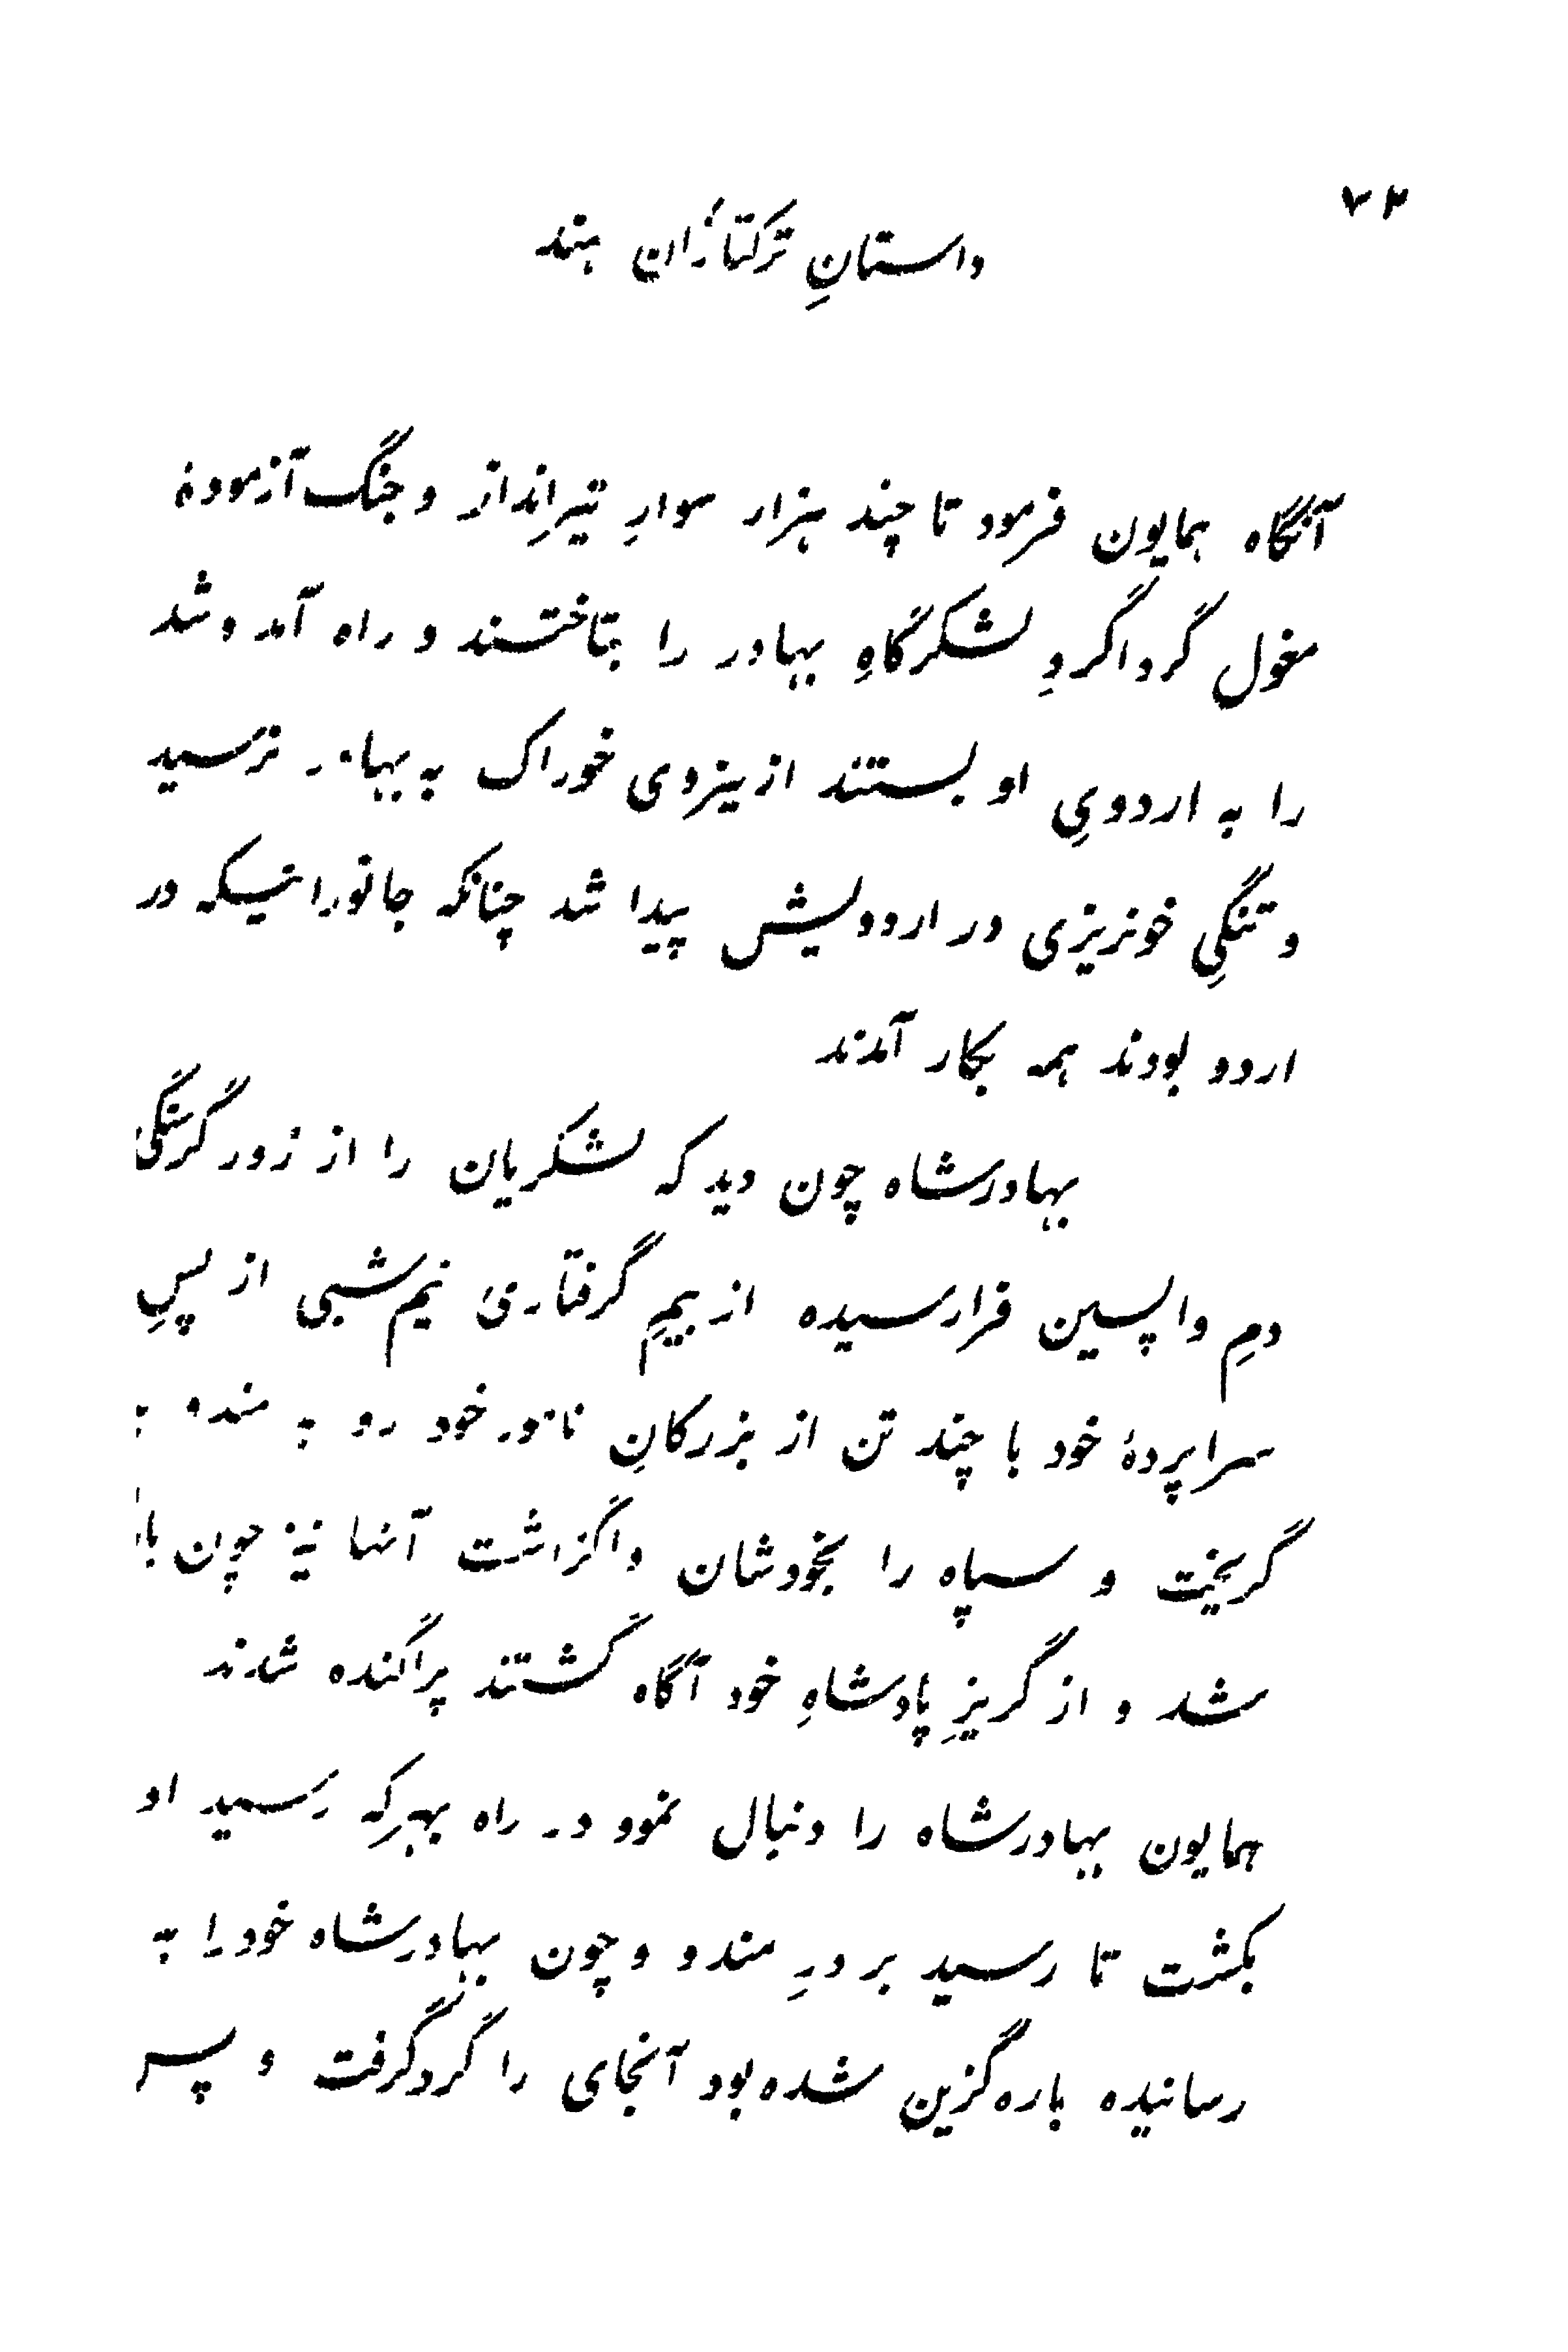 ۷۲
داستانِ ترکتازان هند
آنگاه همایون فرمود تا چند هزار سوارِ تیرانداز و جنگ آزمودهٔ
مغول گرداگردِ لشکرگاهِ بهادر را بتاختند و راه آمد و شد
را به اردویِ او بستند ازینروی خوراک به بهادر نرسید
و تنگیِ خونریزی در اردویش پیدا شد چنانکه جانورانیکه در
اردو بودند همه بکار آمدند
بهادرشاه چون دید که لشکریان را از زور گرسنگی
دمِ واپسین فرارسیده از بیمِ گرفتاریٔ نیم شبی از پسِ
سراپردهٔ خود با چند تن از بزرکانِ نامور خود رو به مندو
گریخت و سپاه را بخودشان واگزاشت آنها نیز چون
شد و از گریزِ پادشاهِ خود آگاه گشتند پراکنده شدند
همایون بهادرشاه را دنبال نمود در راه بهرکه رسید او
بکشت تا رسید بر درِ مندو و چون بهادرشاه خود را به
رسانیده باره گزین شده بود آنجای را گردگرفت و پس